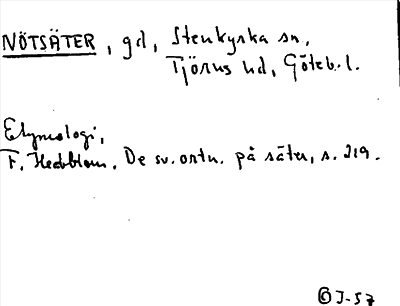 NÖTSÄTER, gd, Stenkyrka sn,
Tjörns hd, Göteb.l.
Etymologi,
F. Hedblom, De sv. ortn. på säter, s. 219.
ÖJ-57